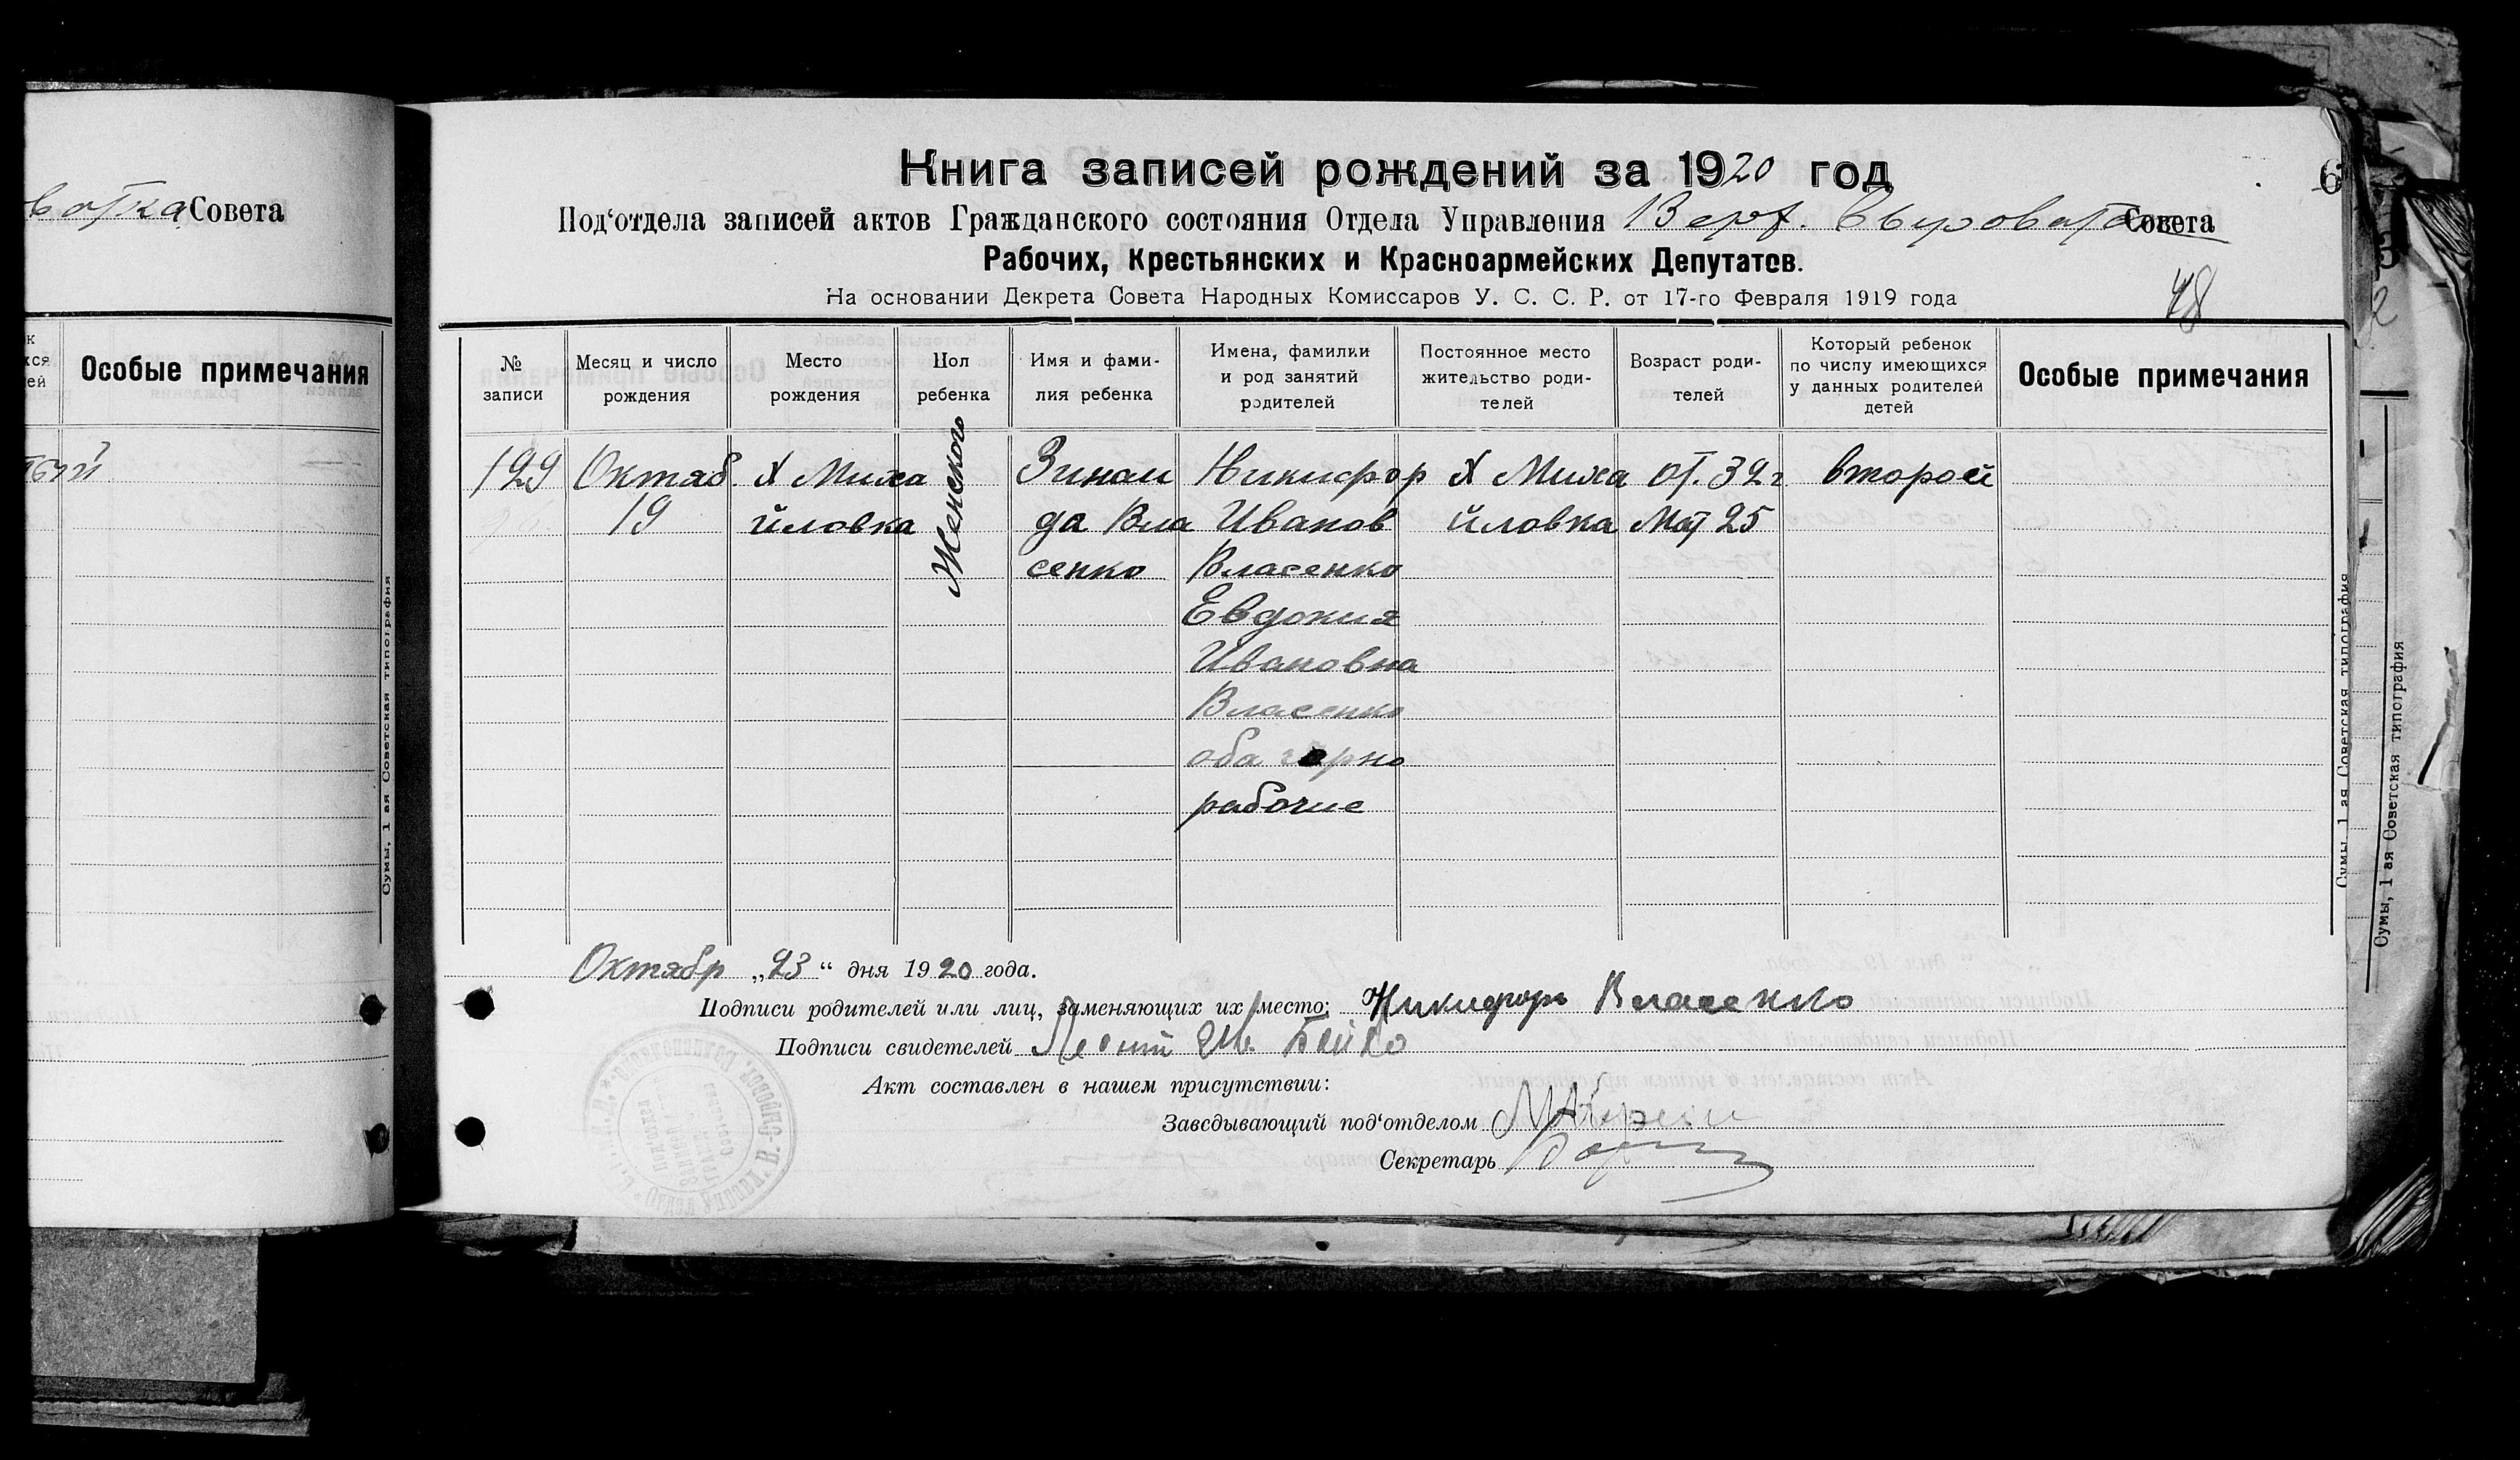 Совета
Особые примечания
Сумы, 1 ая Советская типография
6
Книга записей рождений за 1920 год
Под‘отдела записей актов Гражданского состояния Отдела Управления Верх. Сыроватск Совета
Рабочих, Крестьянских и Красноармейских Депутатов.
На основании Декрета Совета Народных Комиссаров У. С. С. Р. от 17-го Февраля 1919 года
48
№ записи
Месяц и число рождения
Место рождения
Пол ребенка
Имя и фами-
лия ребенка
Имена, фамилии
и род занятий
родителей
Постоянное место
жительство роди-
телей
Возраст роди-
телей
Который ребенок
по числу имеющихся
у данных родителей
детей
Особые примечания
129 Октяб. Х Миха Женского Зинаи Никифор Х Миха от. 32 г второй
19 йловка да Вла Иванов йловка Мат 25
сенко Власенко
Евдокия
Ивановна
Власенко
оба черно
рабочие
Октябр „23“ дня 1920 года.
Подписи родителей или лиц, заменяющих их место: Никифоръ Власенко
Подписи свидетелей
Акт составлен в нашем присутствии:
Заведывающий под‘отделом
Секретарь
Сумы, 1 ая Советская типография
Сумы, 1 ая Советская типография